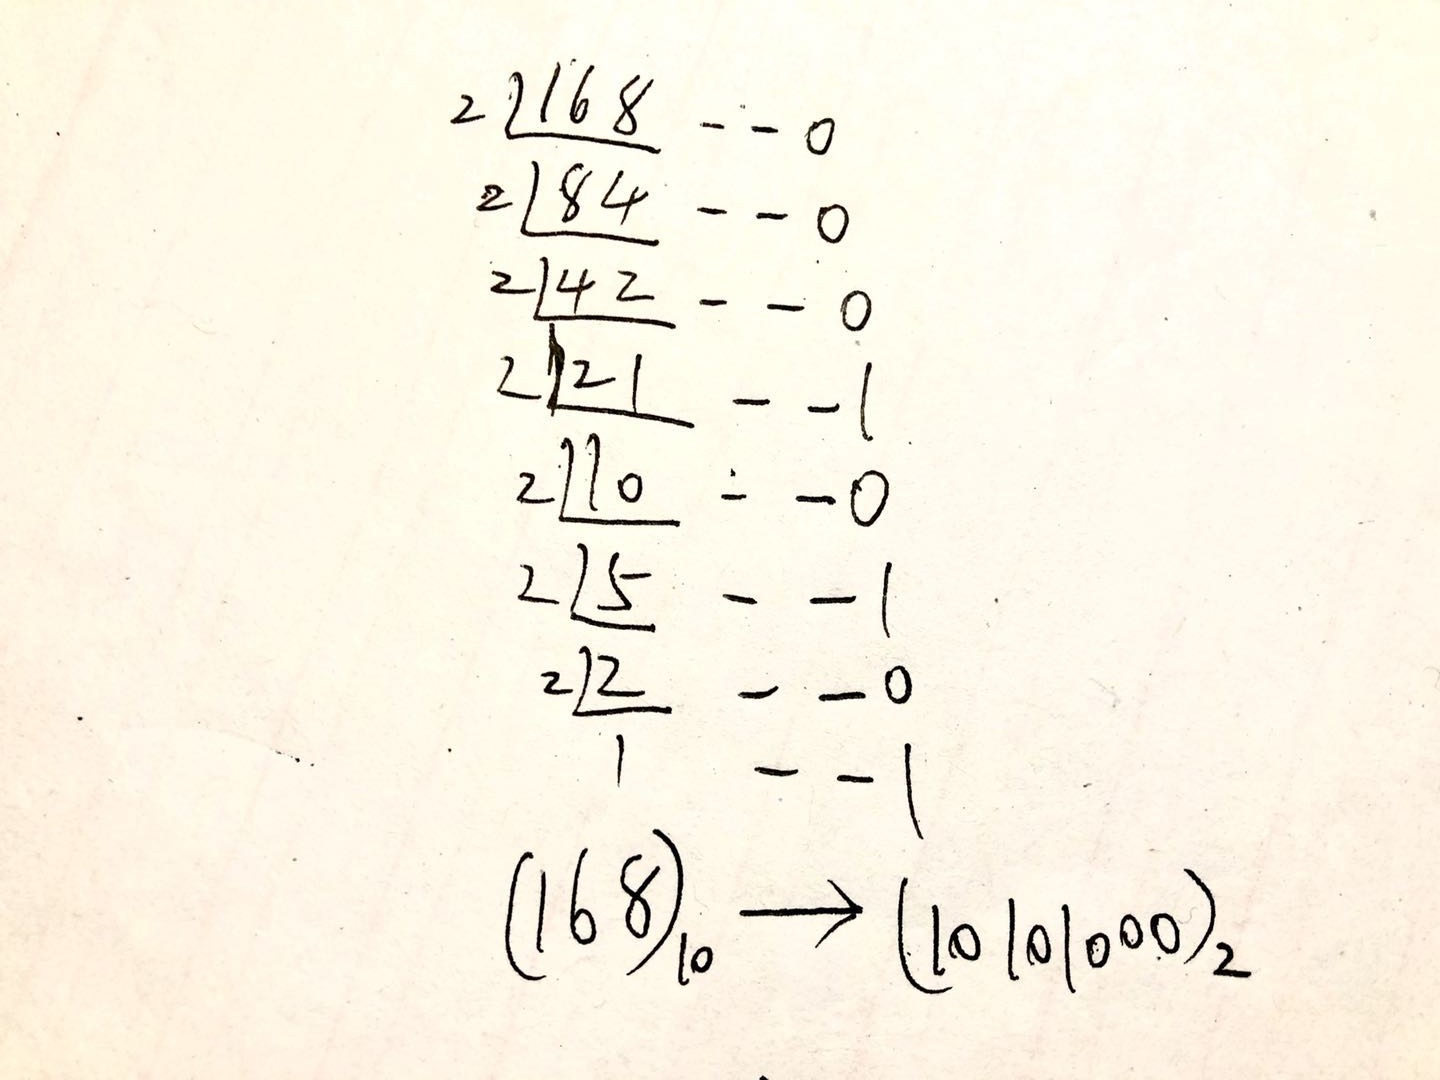 2 168 - - 0
2 84 - - 0
2 42 - - 0
2 21 - - 1
2 10 - - 0
2 5 - - 1
2 2 - - 0
1 - - 1
(168)₁₀ → (10101000)₂